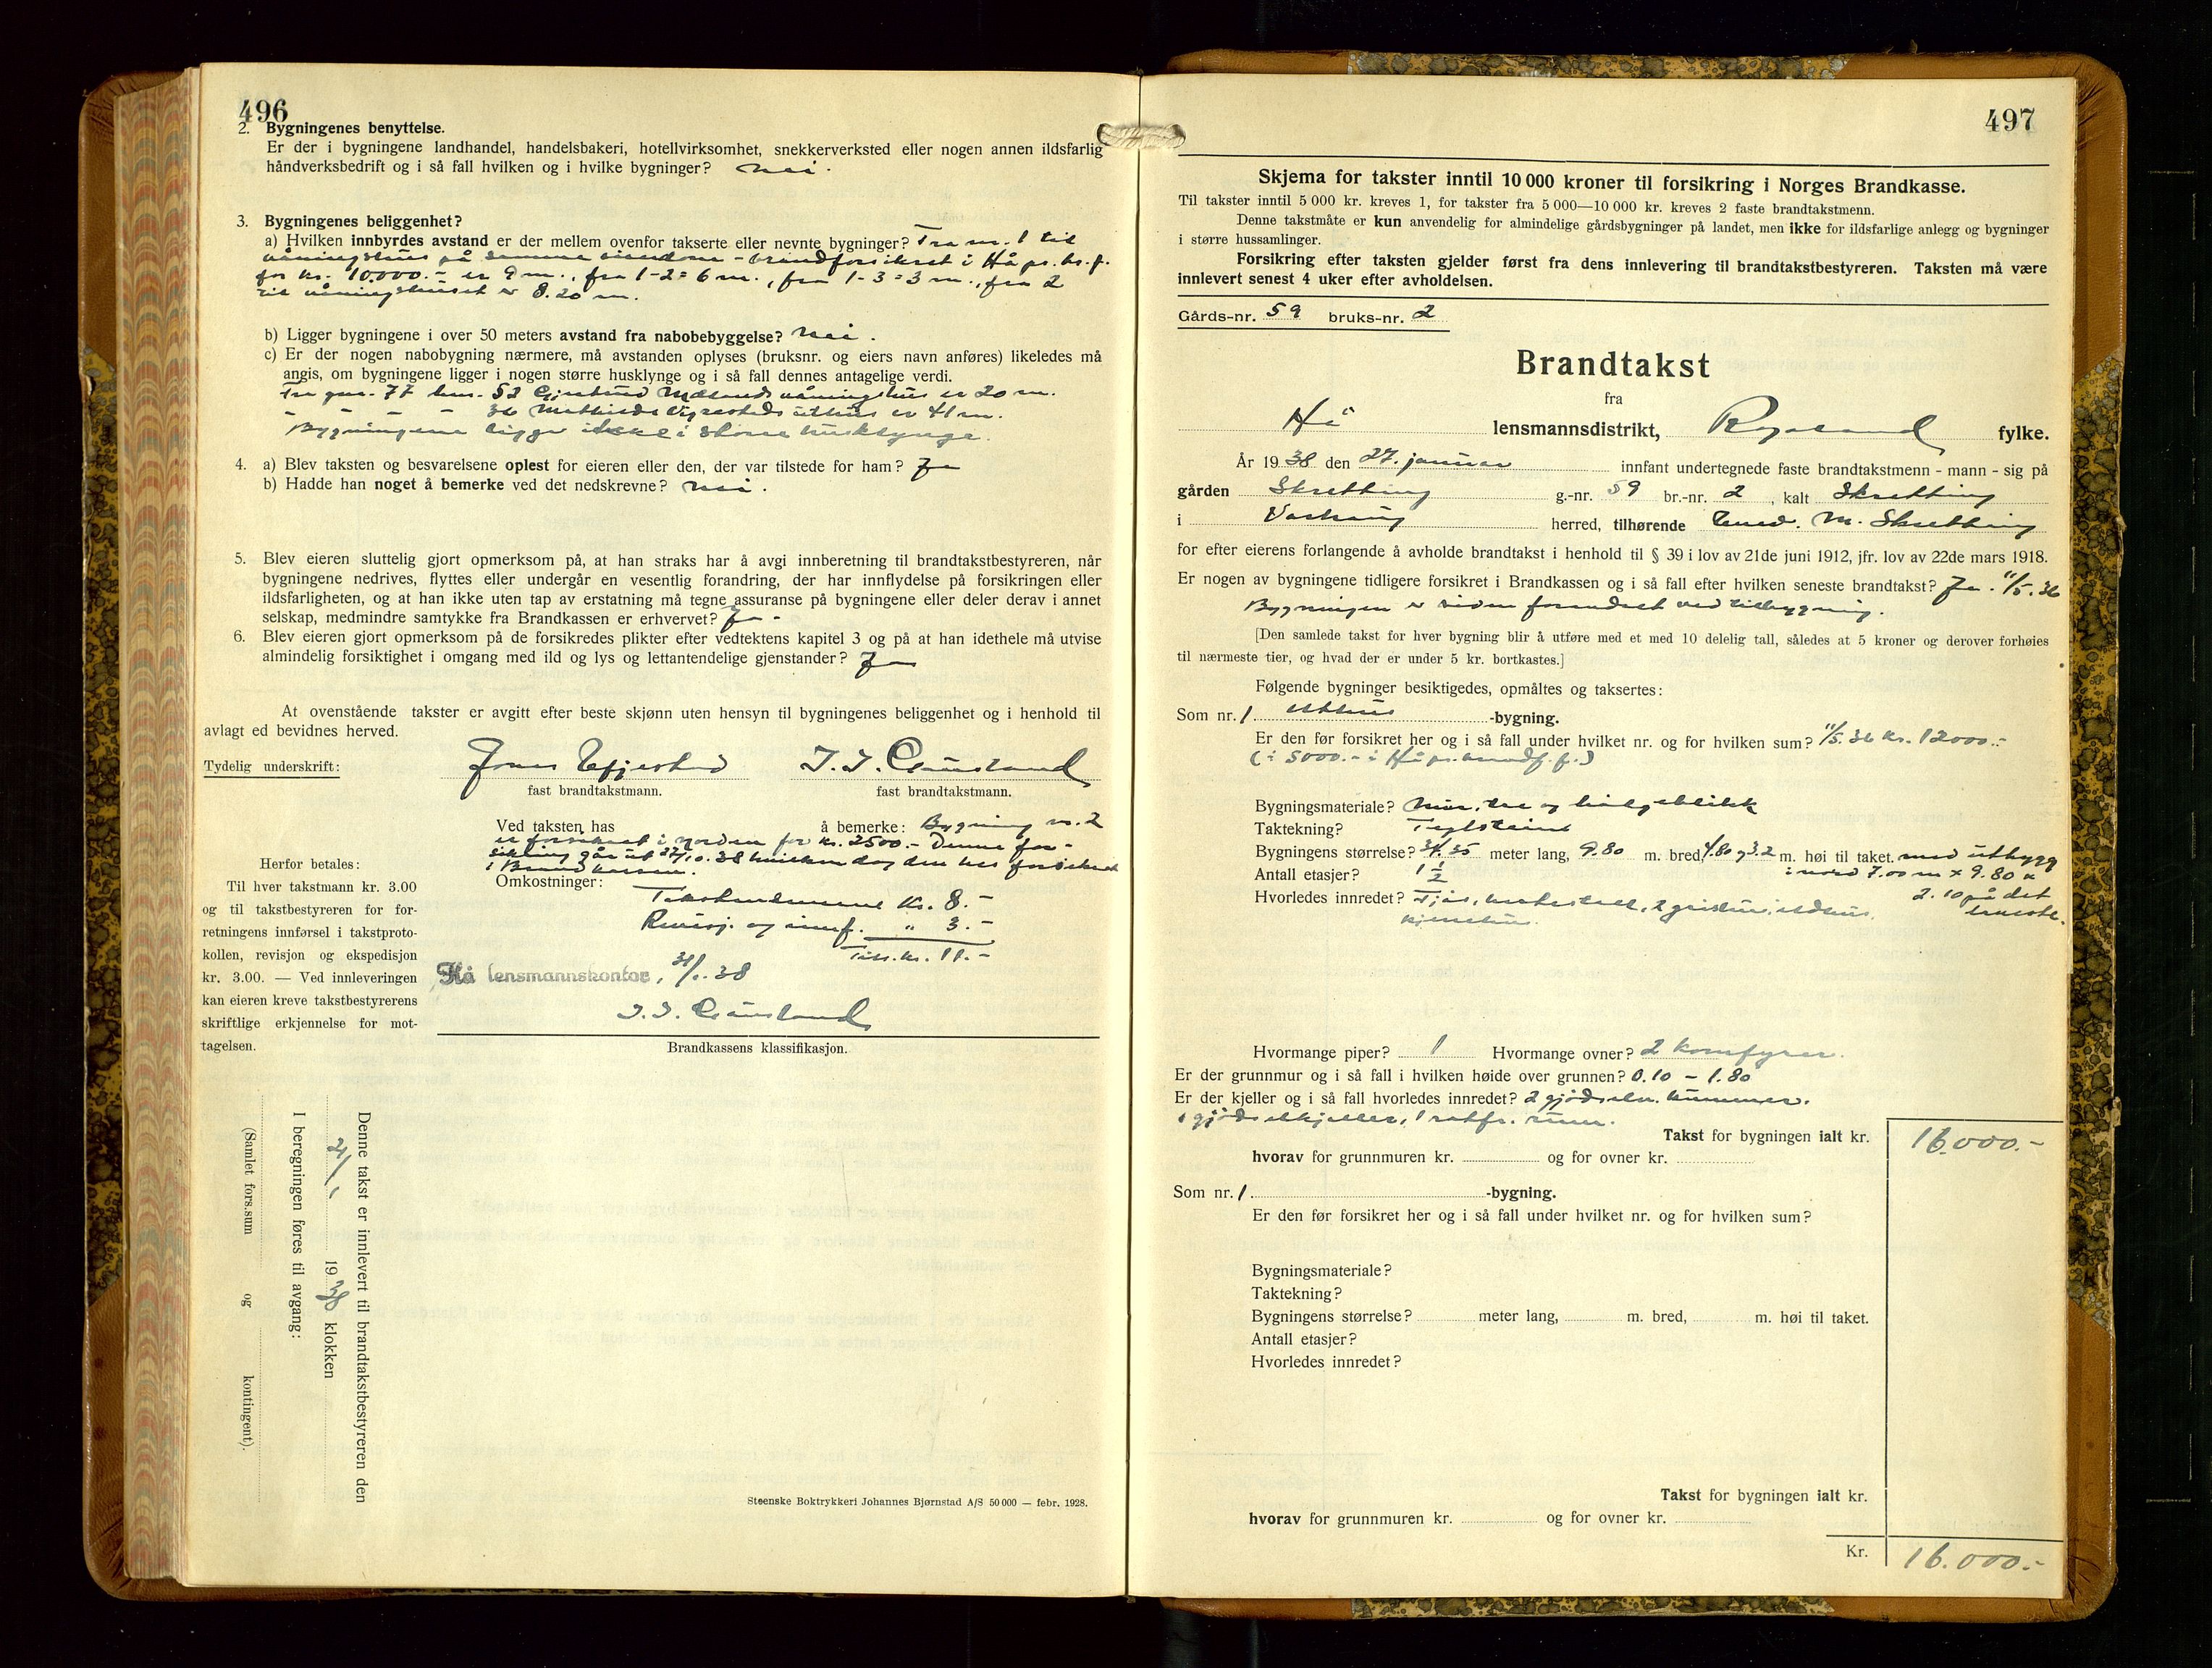 496
2. Bygningenes benyttelse.
Er der i bygningene landhandel, handelsbakeri, hotellvirksomhet, snekkerverksted eller nogen annen ildsfarlig
håndverksbedrift og i så fall hvilken og i hvilke bygninger? nei.
3. Bygningenes beliggenhet?
a) Hvilken innbyrdes avstand er der mellem ovenfor takserte eller nevnte bygninger? Fra nr. 1 til
våningshus på samme eiendom - brandforsikret i Hå pr. br. f.
for kr. 10.000.- er 9 m., fra 1-2 = 6 m., fra 1-3 = 3 m., fra 2
til våningshuset er 8.20 m.
b) Ligger bygningene i over 50 meters avstand fra nabobebyggelse? nei.
c) Er der nogen nabobygning nærmere, må avstanden oplyses (bruksnr. og eiers navn anføres) likeledes må
angis, om bygningene ligger i nogen større husklynge og i så fall dennes antagelige verdi.
Fra gnr. 77 bnr. 52 Gjertrud Mælands våningshus er 20 m.
- - - - 36 Mathilde uthus er 41 m.
Bygningene ligger ikke i større husklynge.
4. a) Blev taksten og besvarelsene oplest for eieren eller den, der var tilstede for ham? Ja
b) Hadde han noget å bemerke ved det nedskrevne? nei.
5. Blev eieren sluttelig gjort opmerksom på, at han straks har å avgi innberetning til brandtakstbestyreren, når
bygningene nedrives, flyttes eller undergår en vesentlig forandring, der har innflydelse på forsikringen eller
ildsfarligheten, og at han ikke uten tap av erstatning må tegne assuranse på bygningene eller deler derav i annet
selskap, medmindre samtykke fra Brandkassen er erhvervet? Ja -
6. Blev eieren gjort opmerksom på de forsikredes plikter efter vedtektens kapitel 3 og på at han idethele må utvise
almindelig forsiktighet i omgang med ild og lys og lettantendelige gjenstander? Ja
At ovenstående takster er avgitt efter beste skjønn uten hensyn til bygningenes beliggenhet og i henhold til
avlagt ed bevidnes herved.
Tydelig underskrift: Jonas
fast brandtakstmann. fast brandtakstmann.
Ved taksten has å bemerke: Bygning nr. 2
er forsikret i Norden for kr. 2500.- Denne for-
sikring går ut 27/10.38 hvilken dag den bes forsikret
i Brandkassen.
Omkostninger:
Takstmennene kr. 8.-
Revisj. og innf. " 3.-
Tils. kr. 11.-
Hå lensmannskontor, 31/1.38
Herfor betales:
Til hver takstmann kr. 3.00
og til takstbestyreren for for-
retningens innførsel i takstproto-
kollen, revisjon og ekspedisjon
kr. 3.00. — Ved innleveringen
kan eieren kreve takstbestyrerens
skriftlige erkjennelse for mot-
tagelsen.
Brandkassens klassifikasjon.
Denne takst er innlevert til brandtakstbestyreren den
31/1 1938 klokken
I beregningen føres til avgang:
(Samlet fors.sum og kontingent).
Steenske Boktrykkeri Johannes Bjørnstad A/S 50 000 — febr. 1928.
497
Skjema for takster inntil 10 000 kroner til forsikring i Norges Brandkasse.
Til takster inntil 5 000 kr. kreves 1, for takster fra 5 000—10 000 kr. kreves 2 faste brandtakstmenn.
Denne takstmåte er kun anvendelig for almindelige gårdsbygninger på landet, men ikke for ildsfarlige anlegg og bygninger
i større hussamlinger.
Forsikring efter taksten gjelder først fra dens innlevering til brandtakstbestyreren. Taksten må være
innlevert senest 4 uker efter avholdelsen.
Gårds-nr. 59 bruks-nr. 2
Brandtakst
fra
Hå lensmannsdistrikt, Rogaland fylke.
År 1938 den 27. januar innfant undertegnede faste brandtakstmenn - mann - sig på
gården Skretting g.-nr. 59 br.-nr. 2, kalt Skretting
i Varhaug herred, tilhørende M. Skretting
for efter eierens forlangende å avholde brandtakst i henhold til § 39 i lov av 21de juni 1912, jfr. lov av 22de mars 1918.
Er nogen av bygningene tidligere forsikret i Brandkassen og i så fall efter hvilken seneste brandtakst? Ja. 11/5.36
Bygningen er siden forandret ved tilbygning.
[Den samlede takst for hver bygning blir å utføre med et med 10 delelig tall, således at 5 kroner og derover forhøies
til nærmeste tier, og hvad der er under 5 kr. bortkastes.]
Følgende bygninger besiktigedes, opmåltes og taksertes:
Som nr. 1 Uthus -bygning.
Er den før forsikret her og i så fall under hvilket nr. og for hvilken sum? 11/5.36 kr. 12000.-
(i 5000.- i Hå pr. brandf. f.)
Bygningsmateriale? Mur, tre og bølgeblikk
Taktekning? Teglsteins
Bygningens størrelse? 34.35 meter lang, 9.80 m. bred 4.80 og 3.2 m. høi til taket. med utbygg
Antall etasjer? 1 1/2 i nord 7.00 m x 9.80 x
2.10 på det
Hvorledes innredet?
Hvormange piper? 1 Hvormange ovner? 2 komfyrer.
Er der grunnmur og i så fall i hvilken høide over grunnen? 0.10 - 1.80
Er der kjeller og i så fall hvorledes innredet? 2 gjødselv. kummer.
1 gjødselkjeller, 1 rotfr. rum.
Takst for bygningen ialt kr. 16.000.-
hvorav for grunnmuren kr. og for ovner kr.
Som nr. 1 -bygning.
Er den før forsikret her og i så fall under hvilket nr. og for hvilken sum?
Bygningsmateriale?
Taktekning?
Bygningens størrelse? meter lang, m. bred, m. høi til taket.
Antall etasjer?
Hvorledes innredet?
Takst for bygningen ialt kr.
hvorav for grunnmuren kr. og for ovner kr.
Kr. 16.000.-